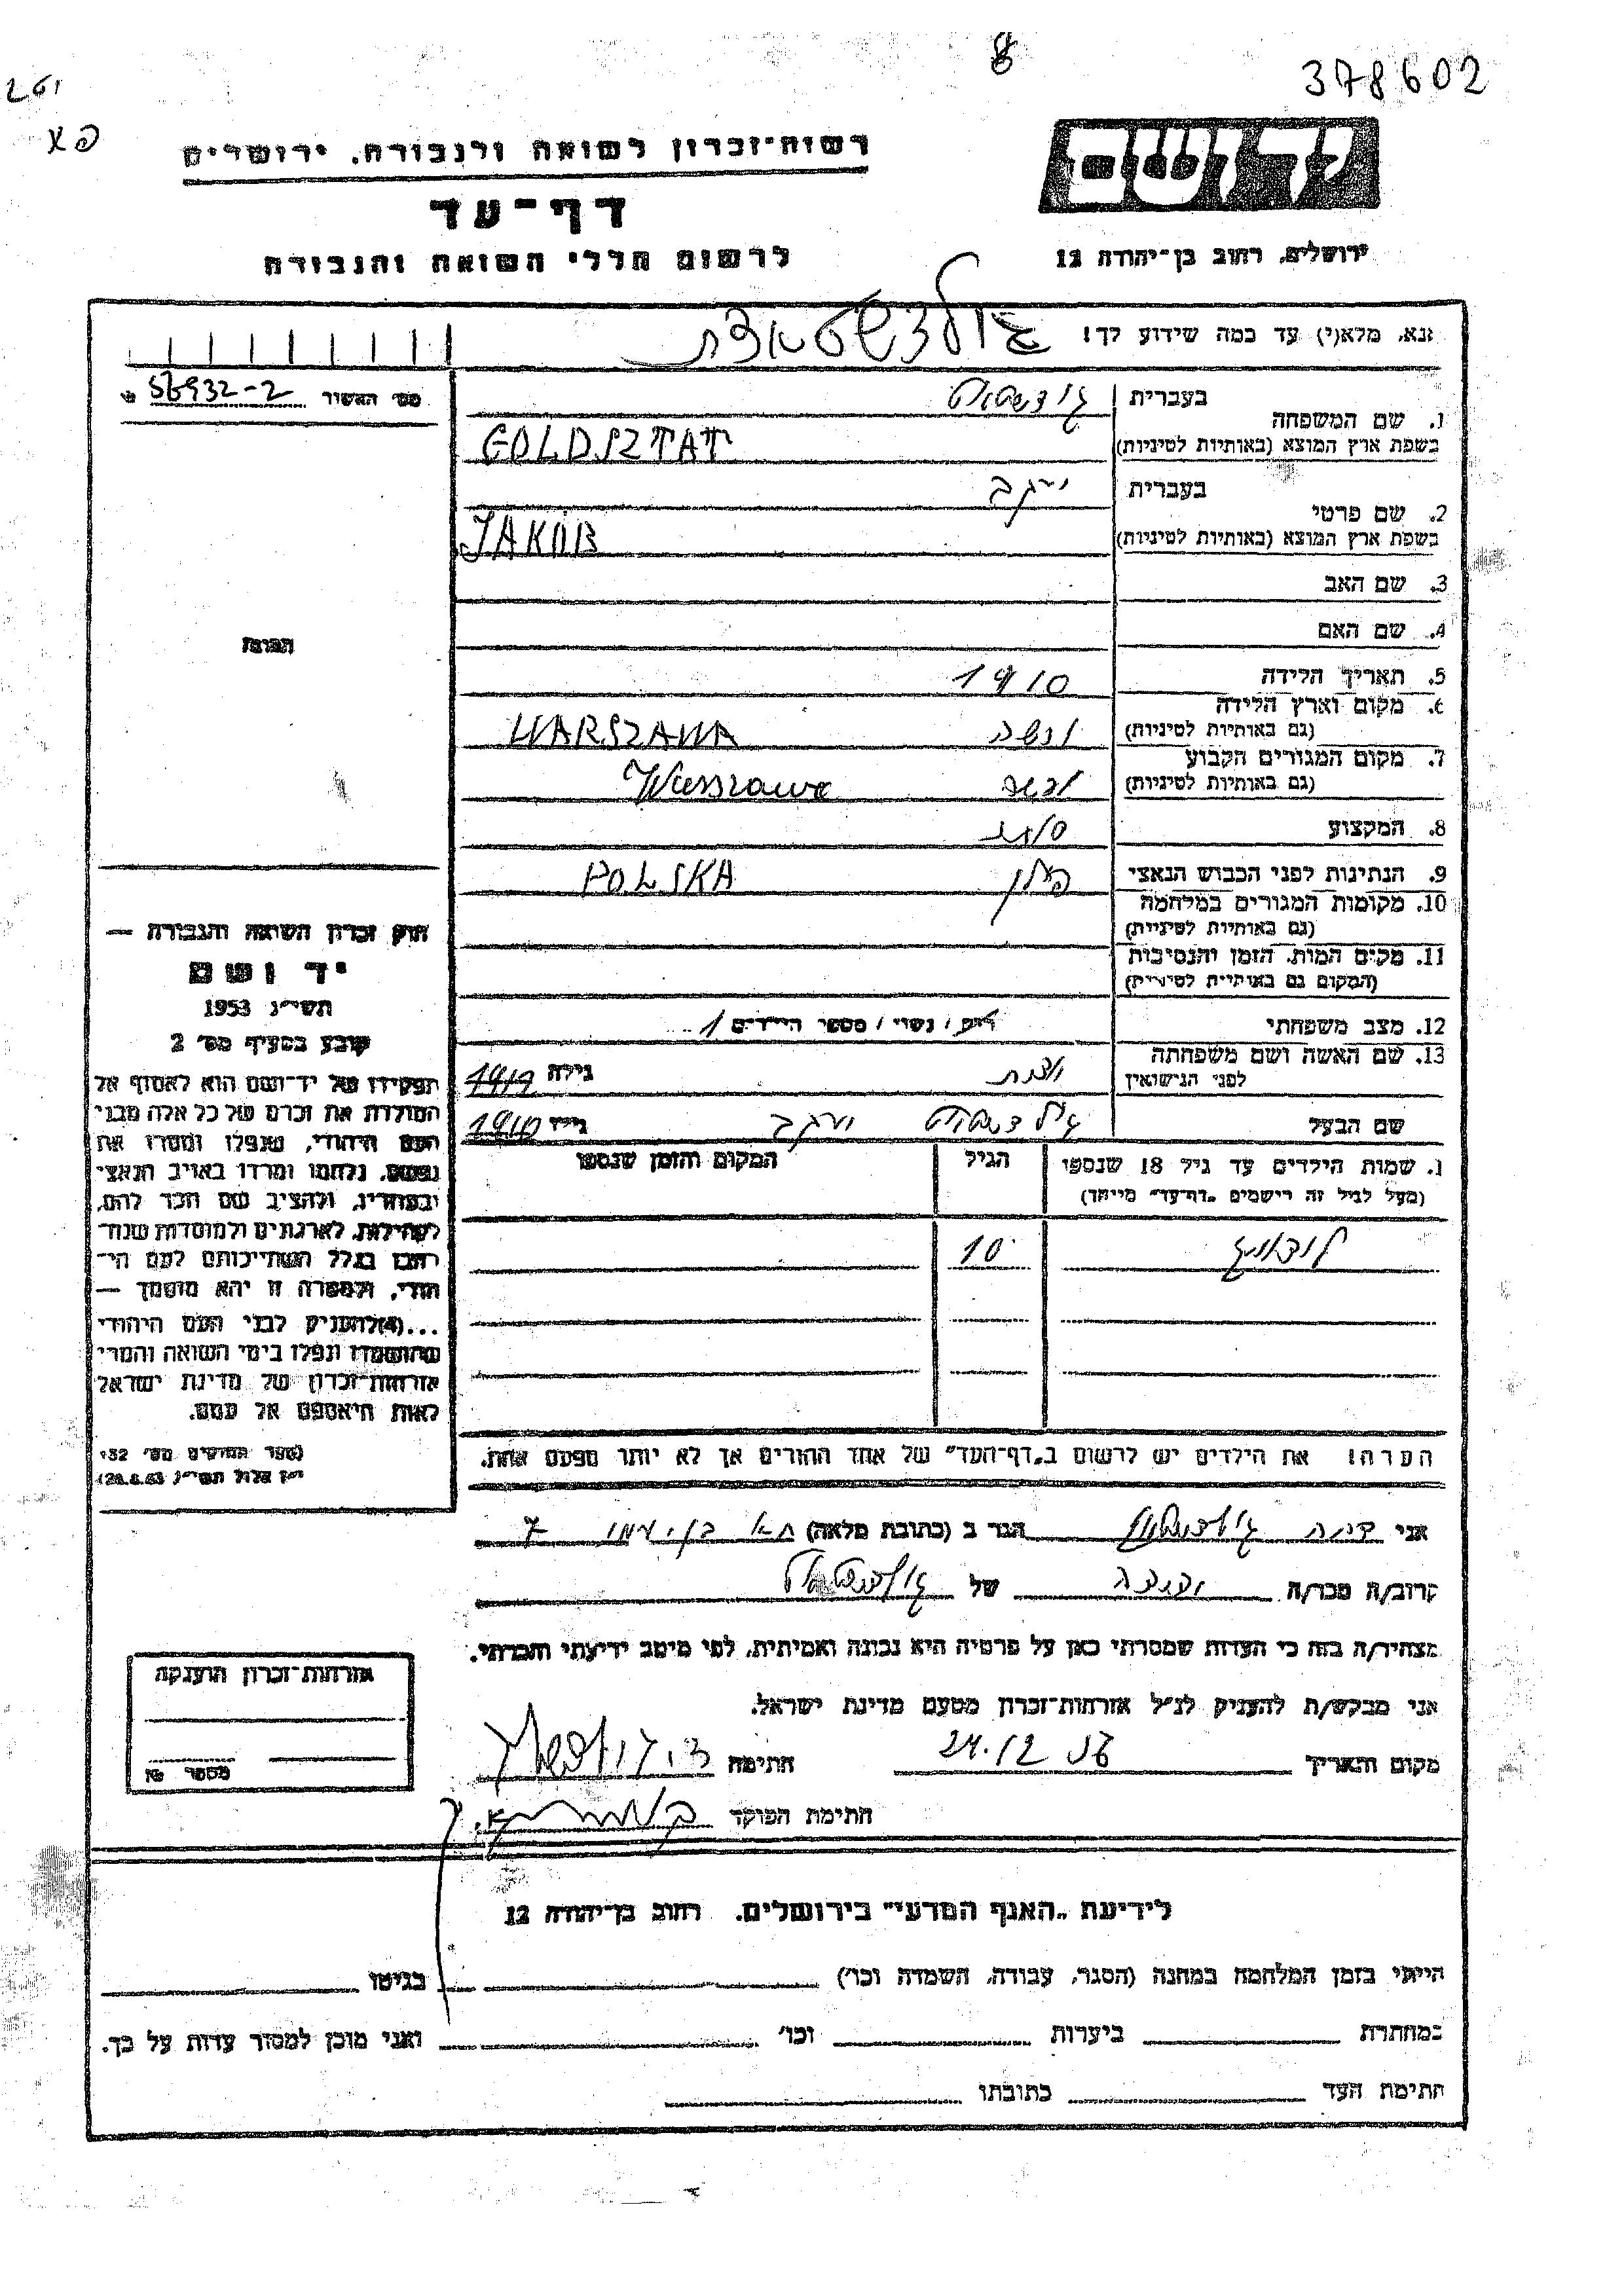 8
378602
פא
רשות־זכרון לשואה ולגבורה, ירושלים
דף־עד
לרשום חללי השואה והגבורה
ירושלים, רחוב בן־יהודה 12
נא, מלא(י) עד כמה שידוע לך!
מס׳ האשור 56932-2
1. שם המשפחה
בעברית
בשפת ארץ המוצא (באותיות לטיניות) GOLDSZTAT
2. שם פרטי
בעברית יעקב
בשפת ארץ המוצא (באותיות לטיניות) JAKOB
3. שם האב
4. שם האם
5. תאריך הלידה 1910
6. מקום וארץ הלידה
(גם באותיות לטיניות) ורשה WARSZAWA
7. מקום המגורים הקבוע
(גם באותיות לטיניות) ורשה Warszawa
8. המקצוע סוחר
9. הנתינות לפני הכבוש הנאצי פולין POLSKA
10. מקומות המגורים במלחמה
(גם באותיות לטיניות)
11. מקום המות, הזמן והנסיבות
(המקום גם באותיות לטיניות)
12. מצב משפחתי רווק / נשוי / מספר הילדים 1
13. שם האשה ושם משפחתה
לפני הנישואין
גילה
שם הבעל יעקב גילו 1910
שמות הילדים עד גיל 18 שנספו
(מעל לגיל זה רישמים „דף־עד” מיוחד)
הגיל
המקום והזמן שנספו
10
הערה! את הילדים יש לרשום ב„דף־העד” של אחד ההורים אך לא יותר מפעם אחת.
חוק זכרון השואה והגבורה —
יד ושם
תשי״ג 1953
קובע בסעיף מס׳ 2
תפקידו של יד־ושם הוא לאסוף אל
המולדת את זכרם של כל אלה מבני
העם היהודי, שנפלו ומסרו את
נפשם, נלחמו ומרדו באויב הנאצי
ובעוזריו, ולהציב שם וזכר להם,
לקהילות, לארגונים ולמוסדות שנח־
רבו בגלל השתייכותם לעם הי־
הודי, ולמטרה זו יהא מוסמך —
...(4)להעניק לבני העם היהודי
שהושמדו ונפלו בימי השואה והמרי
אזרחות־זכרון של מדינת ישראל
לאות היאספם אל עמם.
(ספר החוקים מס׳ 132
י״ז אלול תשי״ג 28.8.53)
אני הגר ב (כתובת מלאה)
קרוב/ה מכר/ה של
מצהיר/ה בזה כי העדות שמסרתי כאן על פרטיה היא נכונה ואמיתית, לפי מיטב ידיעתי והכרתי.
אני מבקש/ת להעניק לנ״ל אזרחות־זכרון מטעם מדינת ישראל.
מקום ותאריך 24.12 חתימה
חתימת הפוקד
אזרחות־זכרון הוענקה
לידיעת „האגף המדעי” בירושלים, רחוב בן־יהודה 12
הייתי בזמן המלחמה במחנה (הסגר, עבודה, השמדה וכו׳) בגיטו
במחתרת ביערות וכו׳ ואני מוכן למסור עדות על כך.
חתימת העד כתובתו